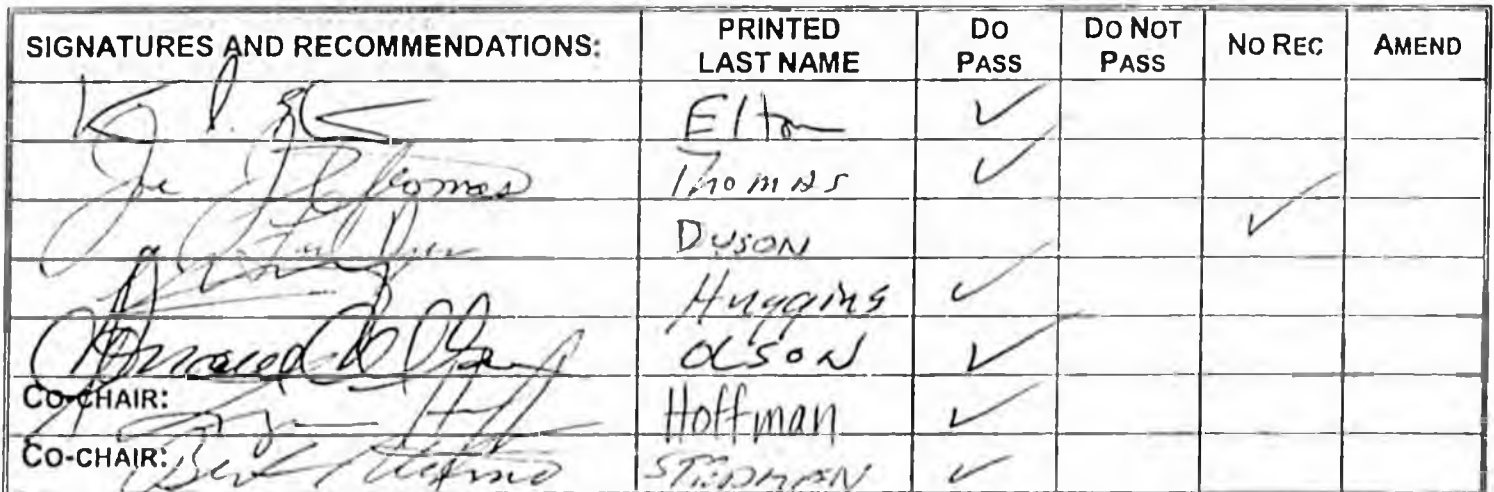 SIGNATURES AND RECOMMENDATIONS: PRINTED LAST NAME DO PASS DO NOT PASS NO REC AMEND
Elton ✓
Joe Thomas Thomas ✓
Dyson ✓
Huggins ✓
Olson ✓
CO-CHAIR: Hoffman ✓
CO-CHAIR: Bert Stedman STEDMAN ✓